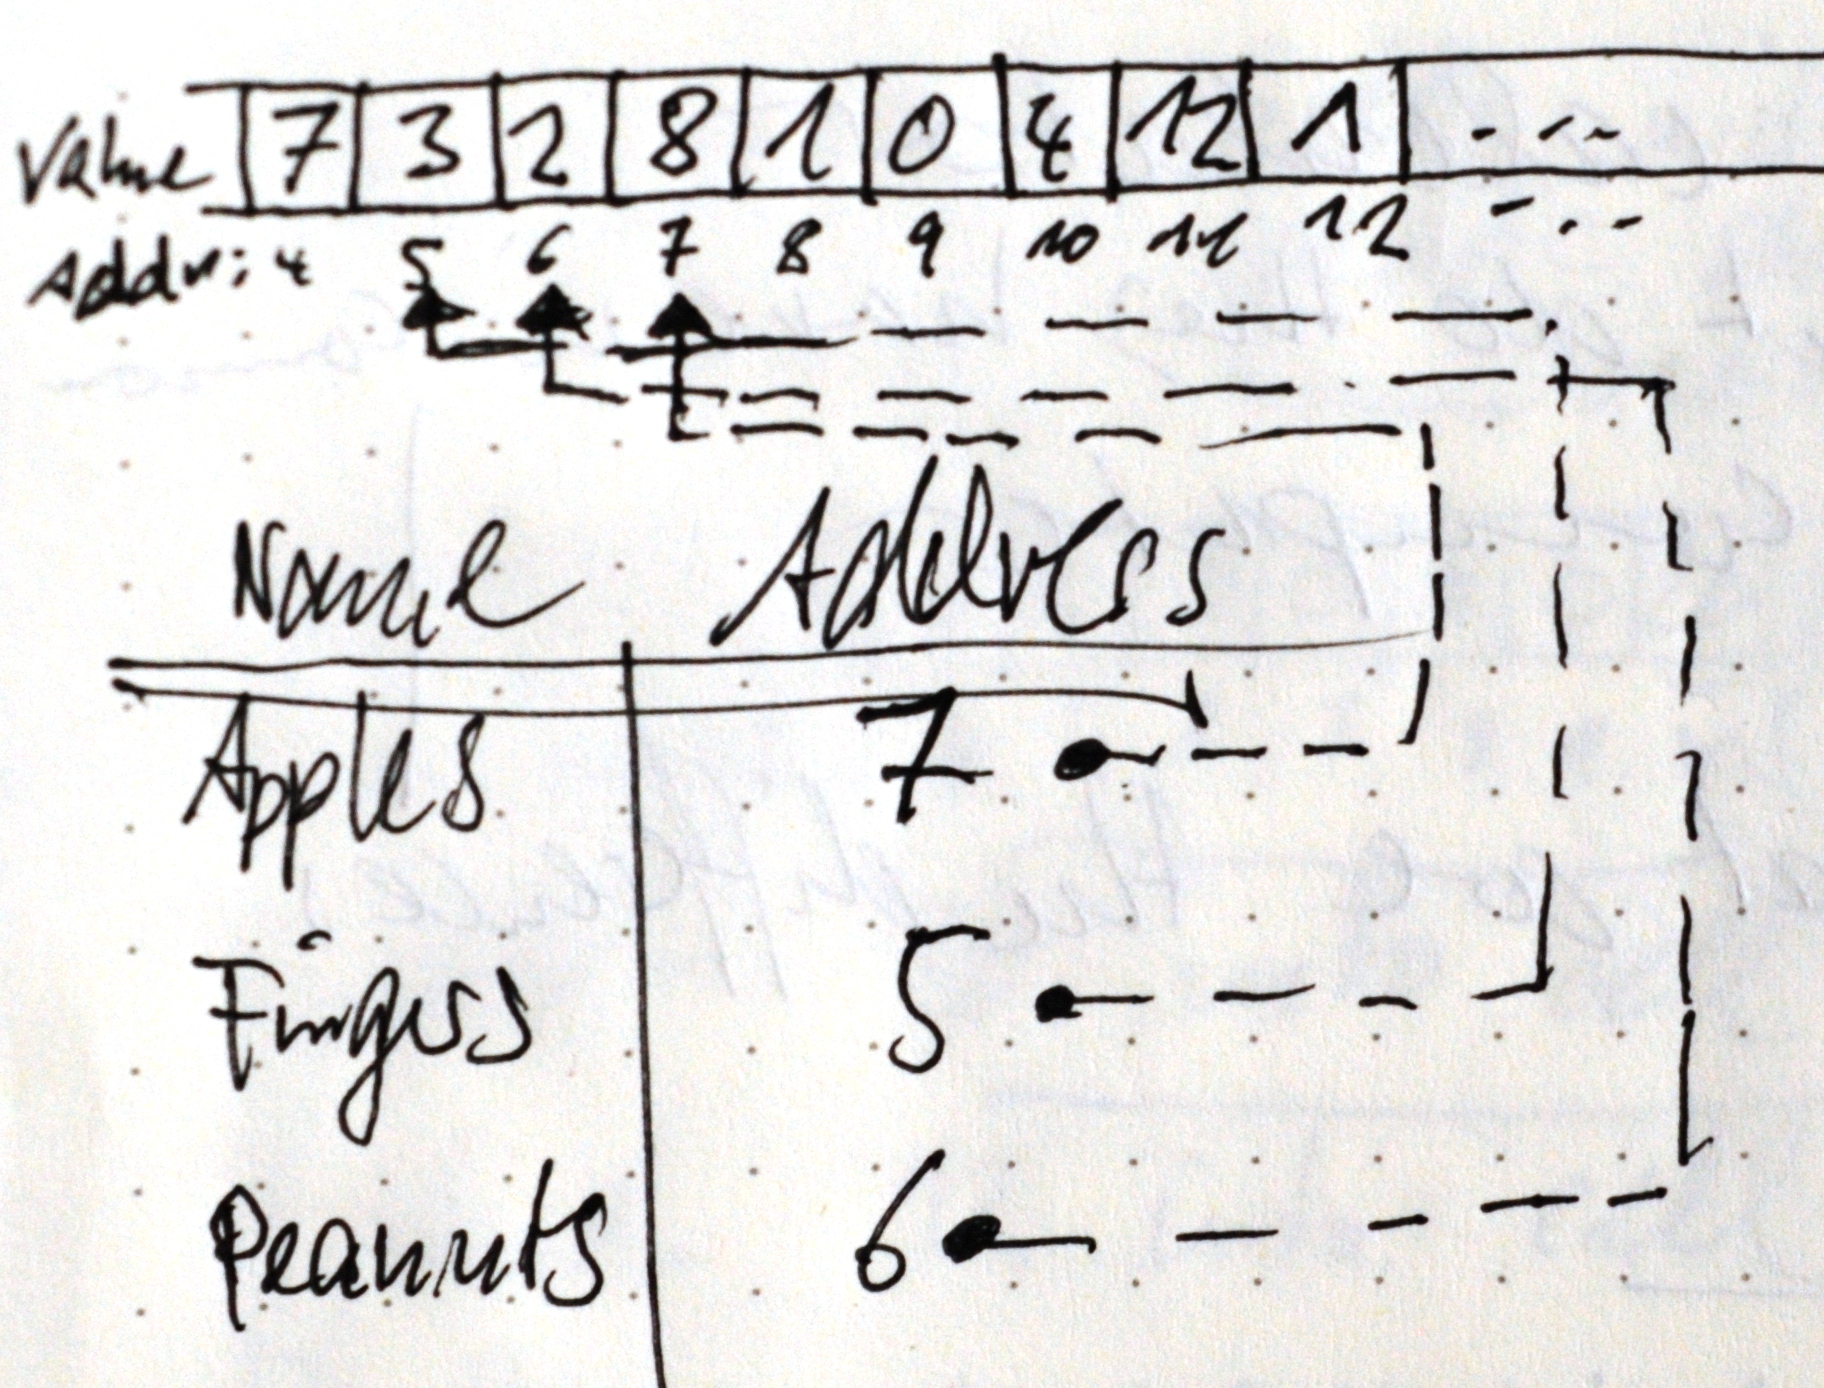 Value 7 3 2 8 1 0 4 12 1 ...
Addr: 4 5 6 7 8 9 10 11 12 ...
Name Address
Apples 7
Fingers 5
Peanuts 6